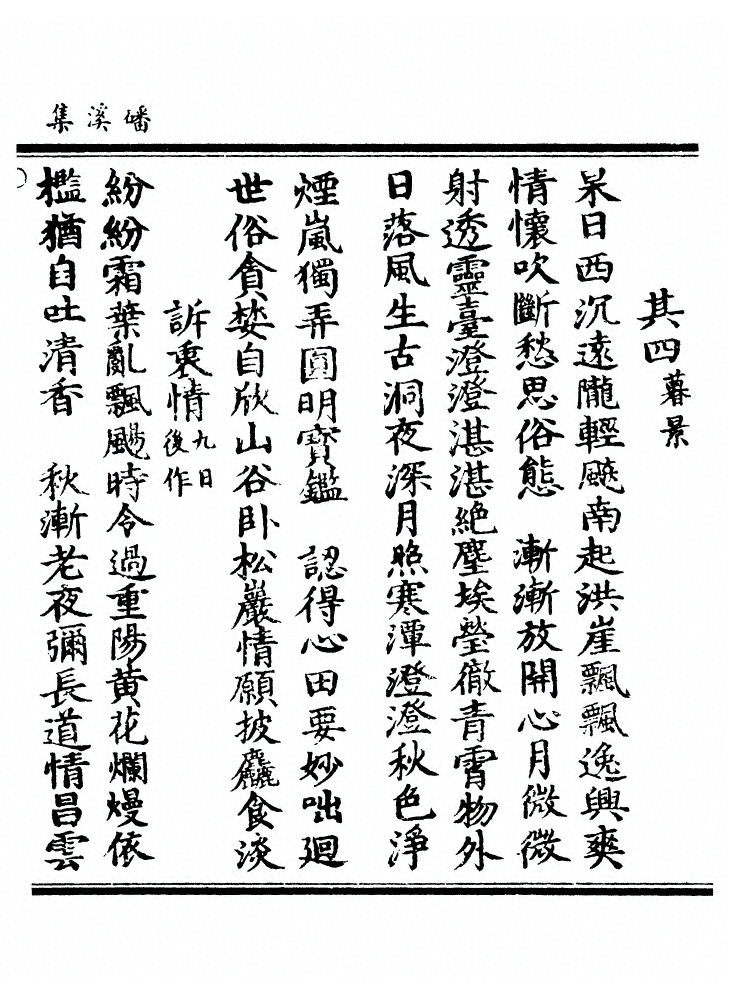 磻溪集
其四暮景
杲日西沉遠隴輕飈南起洪崖飄飄逸興爽
情懷吹斷愁思俗態　漸漸放開心月微微
射透靈臺澄澄湛湛絶塵埃瑩徹青霄物外
日落風生古洞夜深月照寒潭澄澄秋色淨
煙嵐獨弄圓明寶鑑　認得心田要妙咄迴
世俗貪婪自欣山谷卧松巖情願披麤食淡
訴衷情九日後作
紛紛霜葉亂飄颺時令過重陽黄花爛熳依
檻猶自吐清香　秋漸老夜彌長道情昌雲